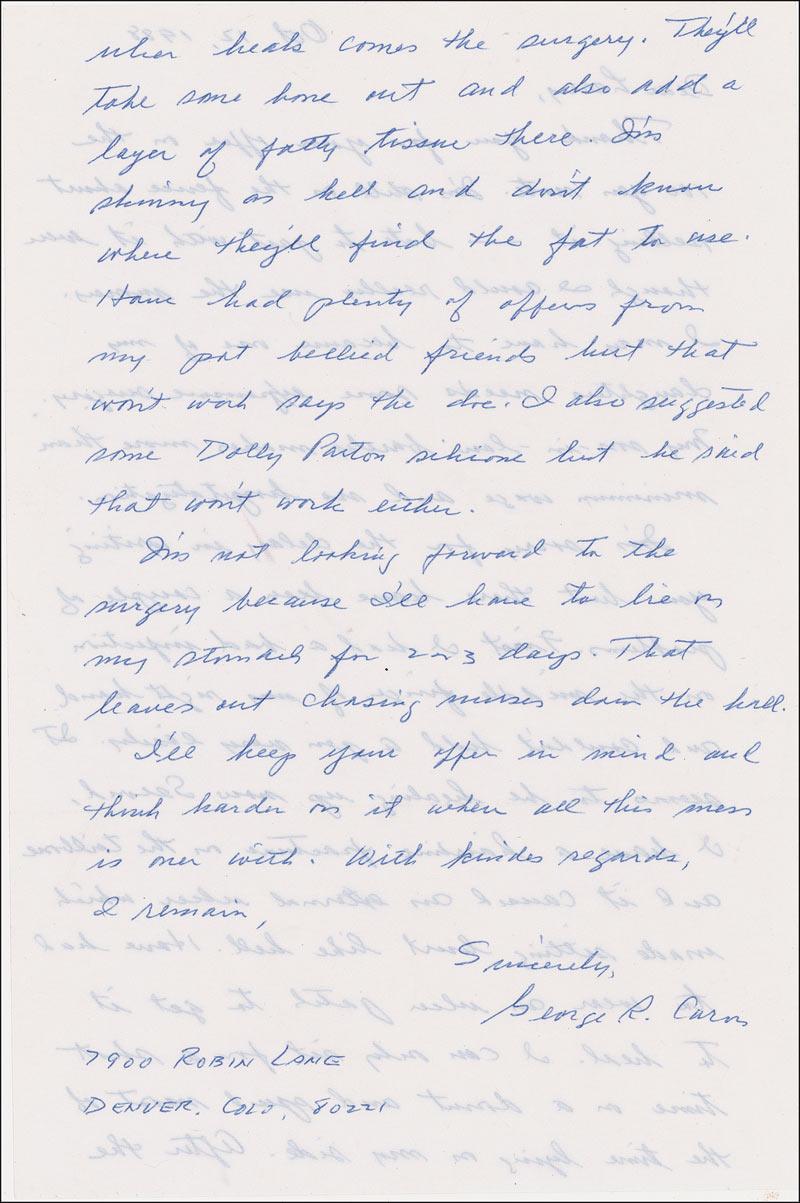 ulcer heals comes the surgery. They'll
take some bone out and also add a
layer of fatty tissue there. I'm
skinny as hell and don't know
where they'll find the fat to use.
Have had plenty of offers from
my pot bellied friends but that
won't work says the doc. I also suggested
some Dolly Parton silicone but he said
that won't work either.
I'm not looking forward to the
surgery because I'll have to lie on
my stomach for 2 or 3 days. That
leaves out chasing nurses down the hall.
I'll keep your offer in mind and
think harder on it when all this mess
is over with. With kindes regards,
I remain,
Sincerely,
George R. Caron
7900 ROBIN LANE
DENVER, COLO, 80221